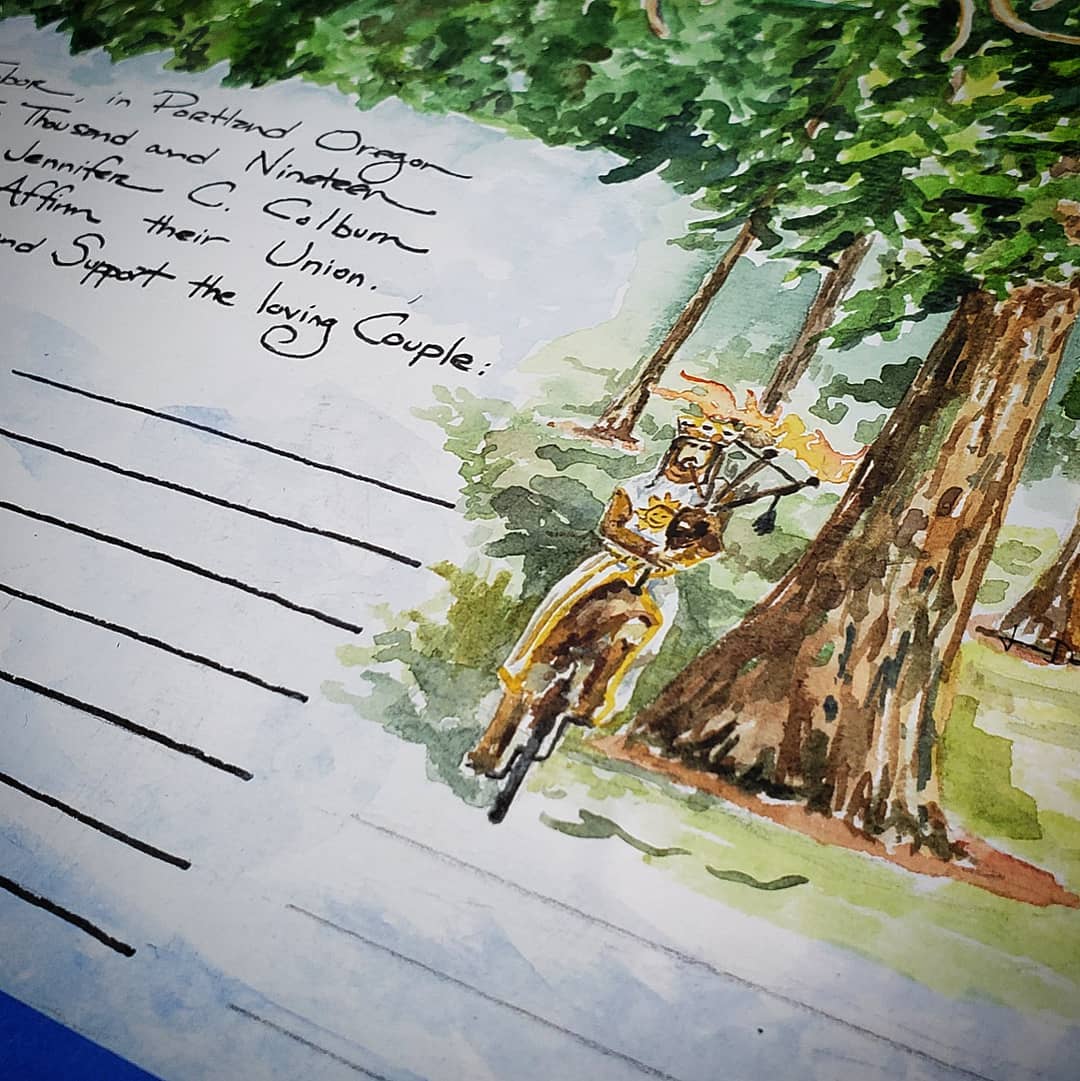 Tabor, in Portland Oregon
Thousand and Nineteen
Jennifer C. Colburn
Affirm their Union.
and Support the loving Couple: